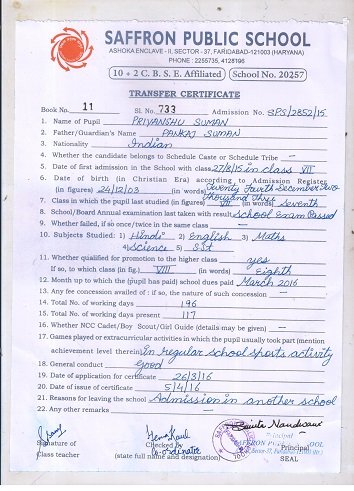 SAFFRON PUBLIC SCHOOL
ASHOKA ENCLAVE - II, SECTOR - 37, FARIDABAD-121003 (HARYANA)
PHONE : 2255735, 4128196
10 + 2 C. B. S. E. Affiliated School No. 20257
TRANSFER CERTIFICATE
Book No. 11 Sl. No. 733 Admission No. SPS/2852/15
1. Name of Pupil PRIYANSHU SUMAN
2. Father/Guardian's Name PANKAJ SUMAN
3. Nationality Indian
4. Whether the candidate belongs to Schedule Caste or Schedule Tribe —
5. Date of first admission in the School with class 27/8/15 in class VII
6. Date of birth (in Christian Era) according to Admission Register
(in figures) 24/12/03 (in words) Twenty Fourth December Two
Thousand Three
7. Class in which the pupil last studied (in figures) VII (in words) Seventh
8. School/Board Annual examination last taken with result School Exam Passed
9. Whether failed, if so once/twice in the same class —
10. Subjects Studied: 1) Hindi 2) English 3) Maths
4) Science 5) SST
11. Whether qualified for promotion to the higher class yes
If so, to which class (in fig.) VIII (in words) Eighth
12. Month up to which the (pupil has paid) school dues paid March 2016
13. Any fee concession availed of : if so, the nature of such concession —
14. Total No. of working days 146
15. Total No. of working days present 117
16. Whether NCC Cadet/Boy Scout/Girl Guide (details may be given) —
17. Games played or extracurricular activities in which the pupil usually took part (mention
achievement level therein) In regular school sports activity
18. General conduct Good
19. Date of application for certificate 26/3/16
20. Date of issue of certificate 5/4/16
21. Reasons for leaving the school Admission in another school
22. Any other remarks —
Signature of
Class teacher
Checked by
Co-ordinator
(state full name and designation)
Principal
SAFFRON PUBLIC
Principal
SEAL